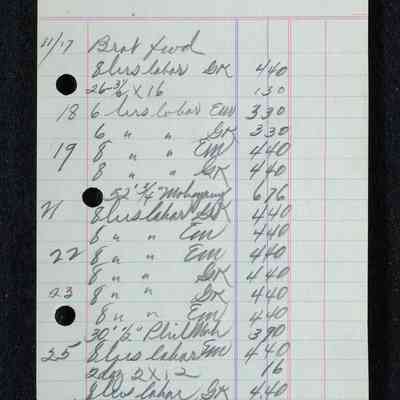 11/17 Brot fwd
8 hrs labor GK 4 40
26-3/4 X 16 1 30
18 6 hrs labor Em 3 30
6 " " GK 3 30
19 8 " " Em 4 40
8 " " GK 4 40
52' 3/4" Mahogany 6 76
21 8 hrs labor GK 4 40
8 " " Em 4 40
22 8 " " Em 4 40
8 " " GK 4 40
23 8 " " GK 4 40
8 " " Em 4 40
30' 1/2" Phil Mah 3 90
25 8 hrs labor Em 4 40
2 doz 2 X 12 16
8 hrs labor GK 4.40